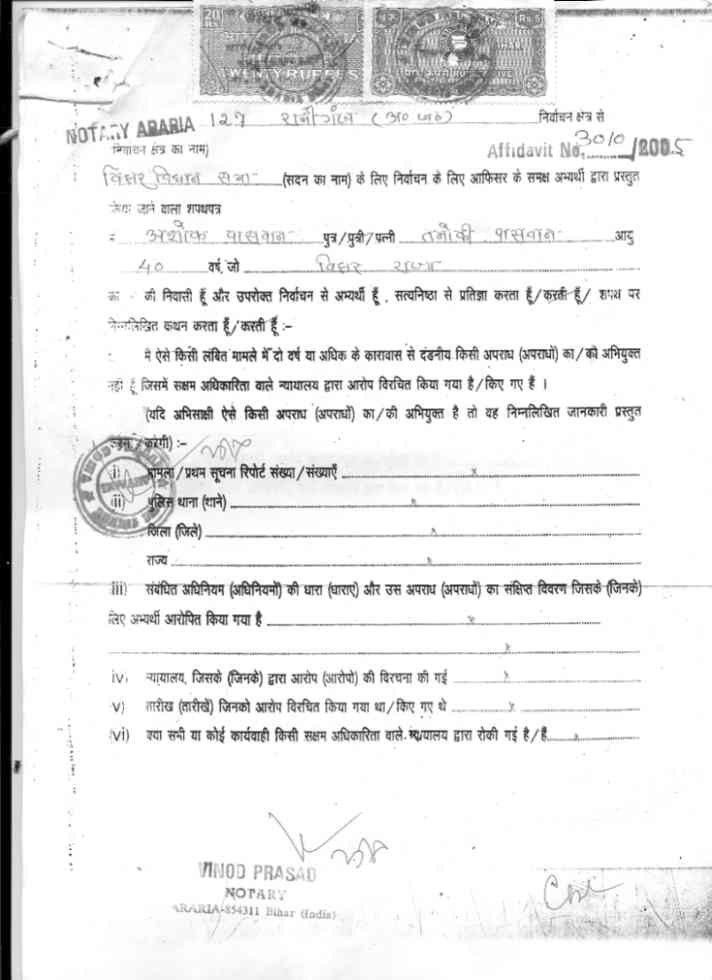 20
RS.
TWENTY RUPEES
Rs. 5
NOTARY ARARIA 127 रानीगंज (अ० जा०) निर्वाचन क्षेत्र से
(निर्वाचन क्षेत्र का नाम) Affidavit No. 3010/2005
बिहार विधान सभा (सदन का नाम) के लिए निर्वाचन के लिए आफिसर के समक्ष अभ्यर्थी द्वारा प्रस्तुत
किया जाने वाला शपथपत्र
अशोक पासवान पुत्र/पुत्री/पत्नी पासवान आयु
40 वर्ष, जो बिहार राज्य
का की निवासी हूँ और उपरोक्त निर्वाचन से अभ्यर्थी हूँ, सत्यनिष्ठा से प्रतिज्ञा करता हूँ/करती हूँ/ शपथ पर
निम्नलिखित कथन करता हूँ/करती हूँ :-
मैं ऐसे किसी लंबित मामले में दो वर्ष या अधिक के कारावास से दंडनीय किसी अपराध (अपराधों) का/की अभियुक्त
नहीं हूँ जिसमें सक्षम अधिकारिता वाले न्यायालय द्वारा आरोप विरचित किया गया है/किए गए हैं ।
(यदि अभिसाक्षी ऐसे किसी अपराध (अपराधों) का/की अभियुक्त है तो वह निम्नलिखित जानकारी प्रस्तुत
करेगी) :-
(i) मामला/प्रथम सूचना रिपोर्ट संख्या/संख्याएँ x
(ii) पुलिस थाना (थाने) x
जिला (जिले) x
राज्य x
(iii) संबंधित अधिनियम (अधिनियमों) की धारा (धाराएं) और उस अपराध (अपराधों) का संक्षिप्त विवरण जिसके (जिनके)
लिए अभ्यर्थी आरोपित किया गया है x
x
(iv) न्यायालय, जिसके (जिनके) द्वारा आरोप (आरोपों) की विरचना की गई x
(v) तारीख (तारीखें) जिनको आरोप विरचित किया गया था/किए गए थे x
(vi) क्या सभी या कोई कार्यवाही किसी सक्षम अधिकारिता वाले न्यायालय द्वारा रोकी गई है/हैं x
VINOD PRASAD
NOTARY
ARARIA-854311 Bihar (India)